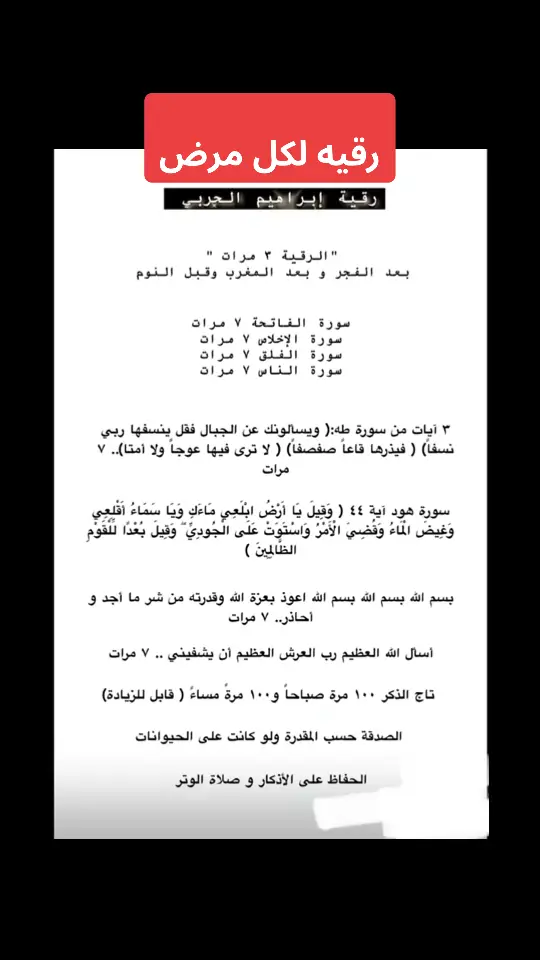 رقيه لكل مرض
رقية إبراهيم الجربي
"الرقية ٣ مرات "
بعد الفجر و بعد المغرب وقبل النوم
سورة الفاتحة ٧ مرات
سورة الإخلاص ٧ مرات
سورة الفلق ٧ مرات
سورة الناس ٧ مرات
٣ أيات من سورة طه:( ويسألونك عن الجبال فقل ينسفها ربي
نسفاً) ( فيذرها قاعاً صفصفاً) ( لا ترى فيها عوجاً ولا أمتا).. ٧
مرات
سورة هود آية ٤٤ ( وَقِيلَ يَا أَرْضُ ابْلَعِي مَاءَكِ وَيَا سَمَاءُ أَقْلِعِي
وَغِيضَ الْمَاءُ وَقُضِيَ الْأَمْرُ وَاسْتَوَتْ عَلَى الْجُودِيِّ ۖ وَقِيلَ بُعْدًا لِّلْقَوْمِ
الظَّالِمِينَ )
بسم الله بسم الله بسم الله اعوذ بعزة الله وقدرته من شر ما أجد و
أحاذر.. ٧ مرات
أسأل الله العظيم رب العرش العظيم أن يشفيني .. ٧ مرات
تاج الذكر ١٠٠ مرة صباحاً و١٠٠ مرةً مساءً ( قابل للزيادة)
الصدقة حسب المقدرة ولو كانت على الحيوانات
الحفاظ على الأذكار و صلاة الوتر